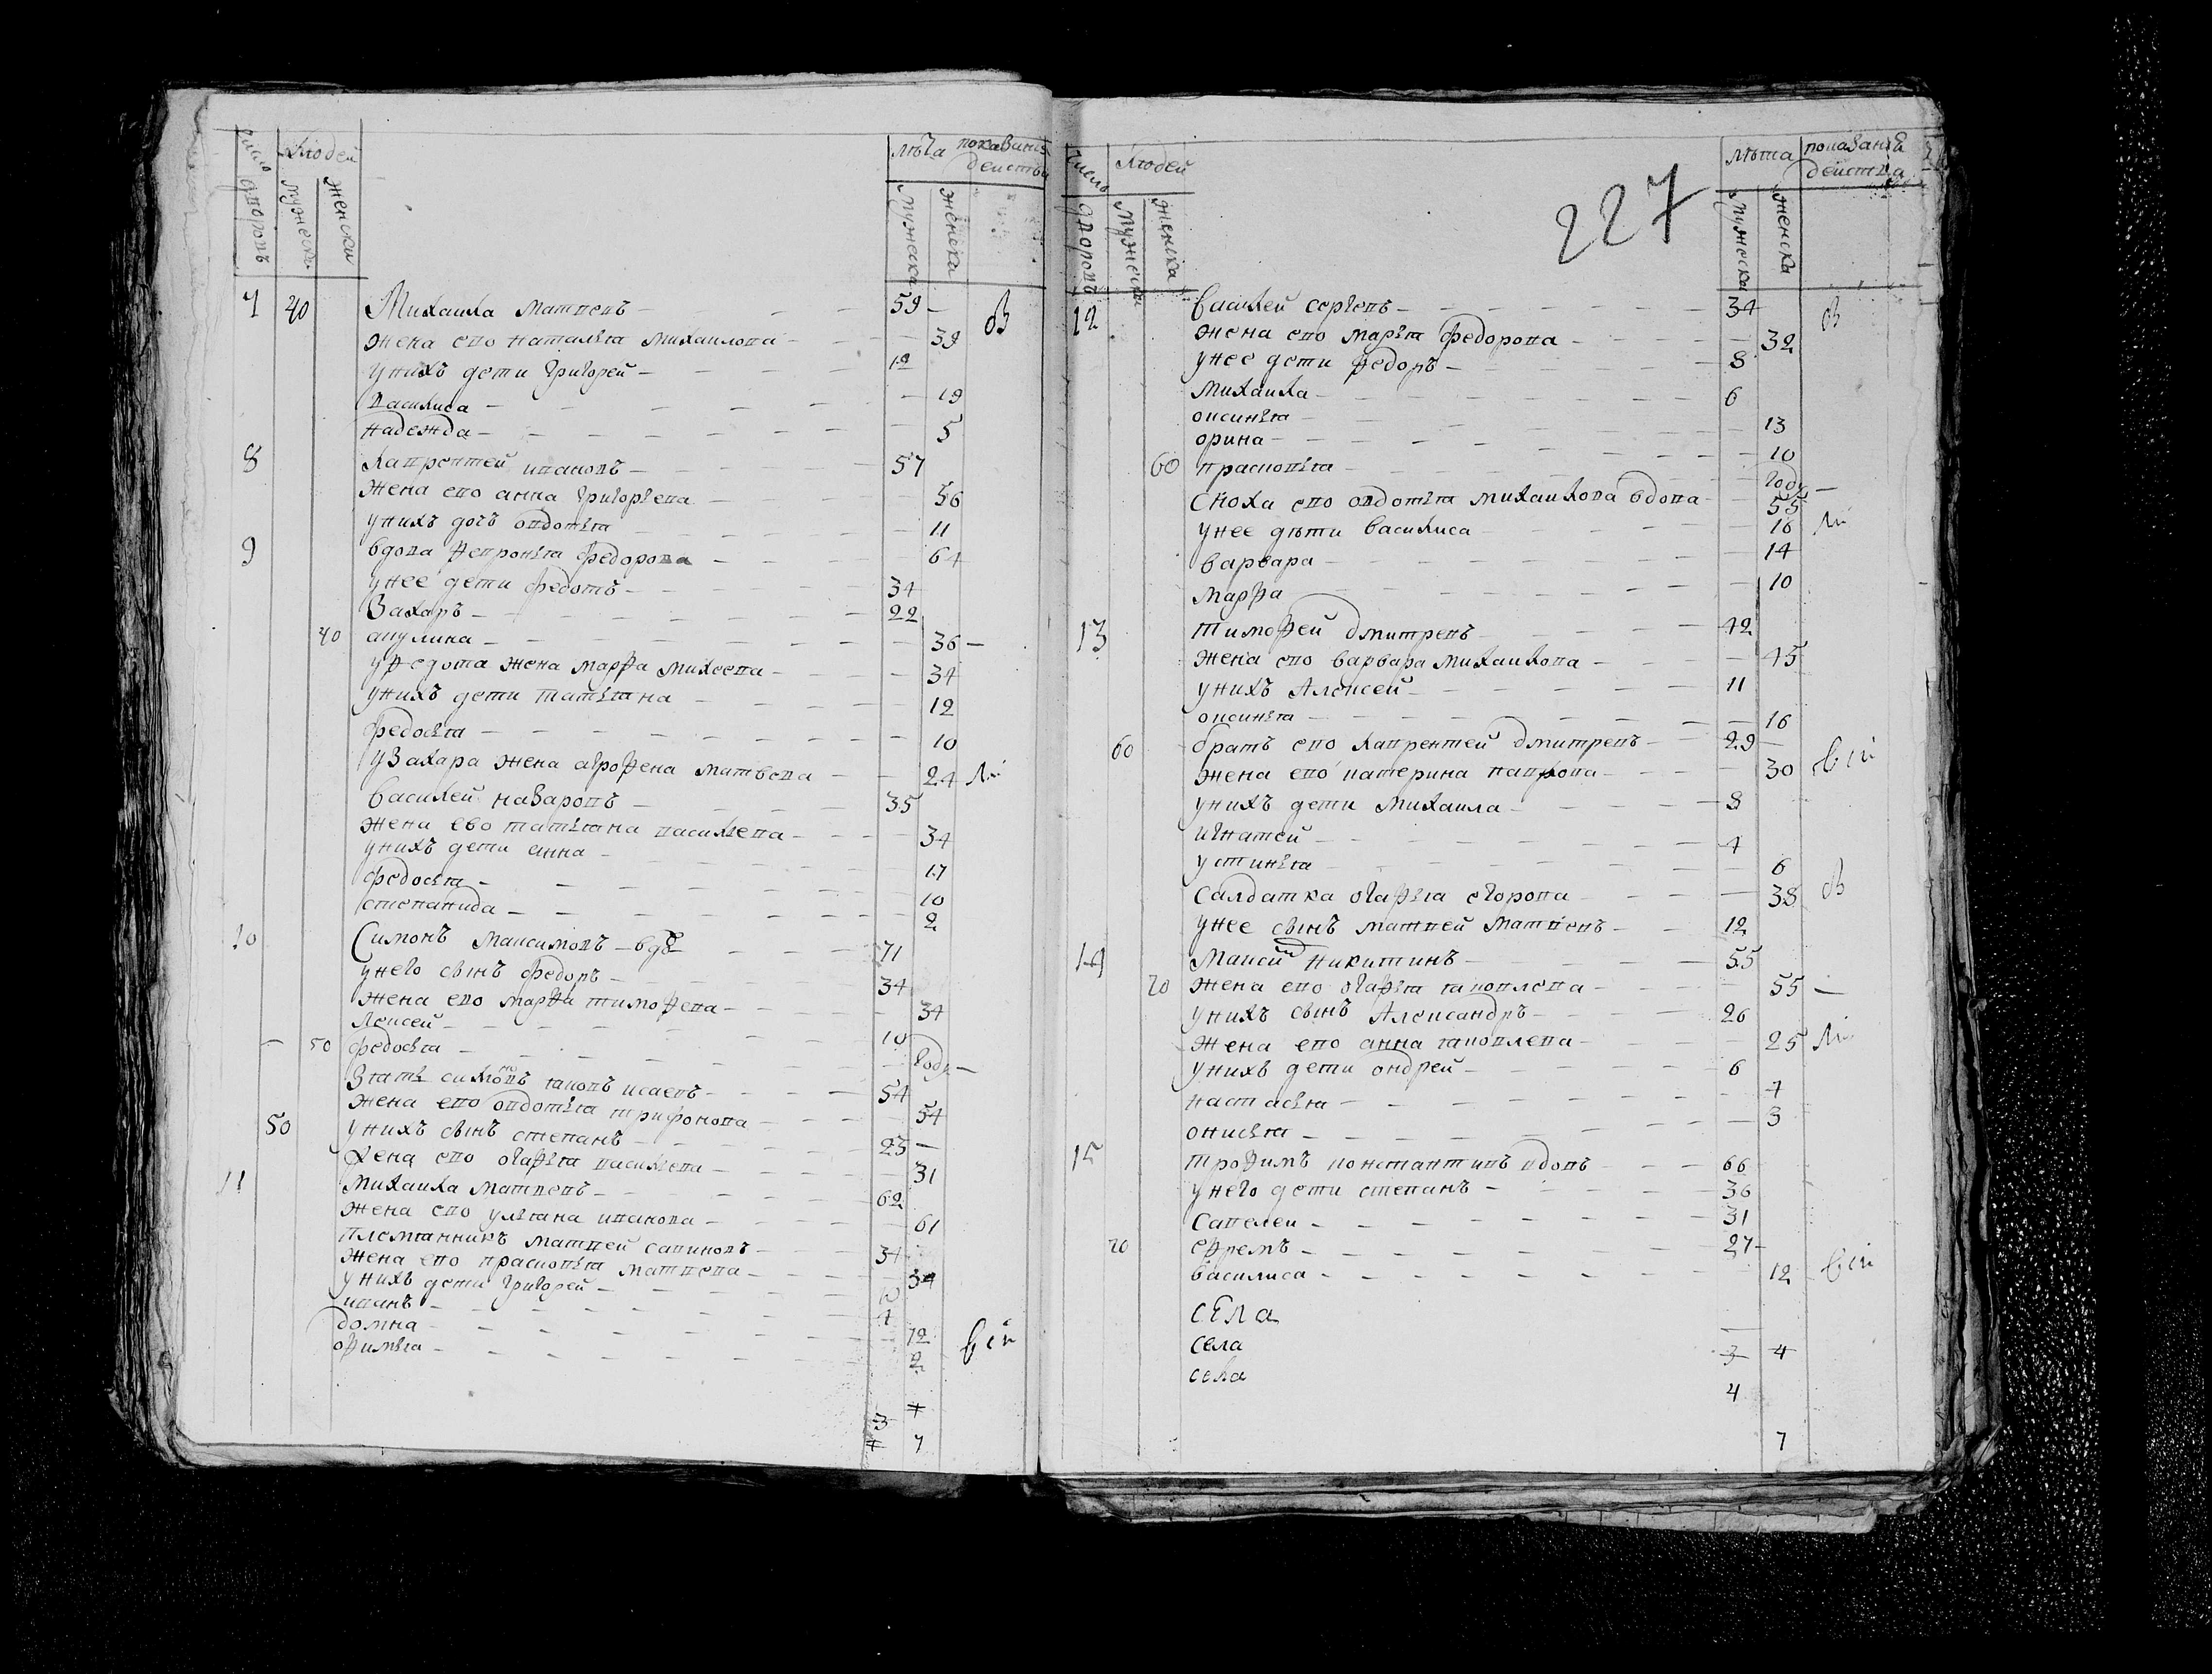 число дворовъ
людей
мужеска
женска
лѣта
мужеска
женска
показания действа
7 40 Михаила матвевъ 59 ов
жена ево наталья михаилова 39
у нихъ дети григорей 12
василиса 19
надежда 5
8 лаврентей ивановъ 57
жена ево анна григорьева 56
у нихъ дочь овдотья 11
9 вдова февронья федорова 64
у нее дети федотъ 34
Захаръ 22
40 акулина 36
у федота жена марфа михеева 34
у нихъ дети татьяна 12
федосья 10
у Захара жена агрофена матвева 24
василей назаровъ 35
жена ево татьяна васильева 34
у нихъ дети анна 17
федосья 10
степанида 2
10 Симонъ максимовъ вдо 71
у него сынъ федоръ 34
жена ево марфа тимофева 34
Лексей 10
50 федосья году
Зять симоновъ яковъ исаевъ 54
жена ево овдотья трифонова 54
50 у нихъ сынъ степанъ 25
жена ево огафья васильева 31
11 Михаила матвевъ 62
жена ево ульяна иванова 61
племянникъ матвей савиновъ 34
жена ево прасковья матвева 34
у нихъ дети григорей
иванъ 4
домна 12
офимья 2
7
227
число дворовъ
людей
мужеска
женска
лѣта
мужеска
женска
показания действа
12 василей сергевъ 34 ов
жена ево марья федорова 32
у нее дети федоръ 8
михаила 6
оксинья 13
орина 10
60 прасковья году
сноха ево овдотья михаилова вдова 55
у нее дѣти василиса 16
варвара 14
марфа 10
13 тимофей дмитревъ 42
жена ево варвара михаилова 45
у нихъ Алексей 11
оксинья 16
60 братъ ево лаврентей дмитревъ 29
жена ево катерина 30
у нихъ дети михаила 8
игнатей 4
устинья 6
салдатка огафья егорова 38 ов
у нее сынъ матвей матвевъ 12
14 Максим никитинъ 55
70 жена ево огафья яковлева 55
у нихъ сынъ Александръ 26
жена ево анна яковлева 25
у нихъ дети ондрей 6
настасья 7
онисья 3
15 трофимъ константинъ вдовъ 66
у него дети степанъ 36
савелеи 31
70 ефремъ 27
василиса 12
села
села 3 4
села 4
7